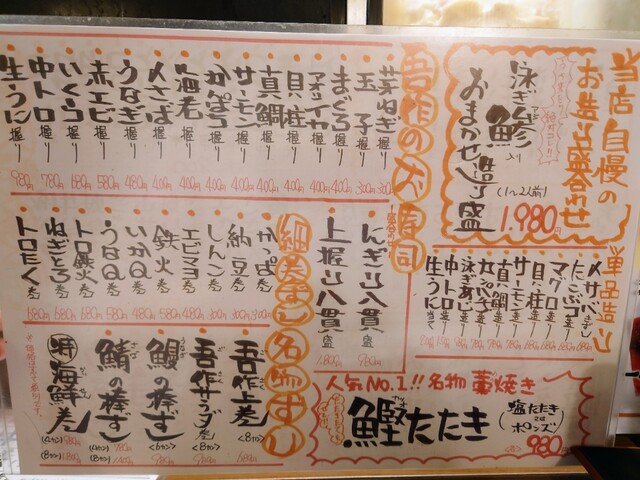 当店自慢の
お造り盛合わせ
泳ぎ鯵入り
おまかせ造り盛
(1〜2人前)
1.980円
単品造り
〆サバ きずし
たこぶつ造
マグロ造り
貝柱造り
サーモン造り
真鯛造り
カンパチ造り
泳ぎあじ造り
中トロ造り
生うに
吾作の大寿司
芽ねぎ握り 300
玉子握り 300
まぐろ握り 400
アオリイカ握り 400
貝柱握り 400円
真鯛握り 400円
サーモン握り 400円
かんぱち握り 400円
海老握り 400円
〆さば握り 400円
うなぎ握り 480円
赤エビ握り 580円
いくら握り 680円
中トロ握り 780円
生うに握り 980円
にぎり八貫盛 980円
上握り八貫盛 1.800円
細巻ずし
かっぱ巻 300円
納豆巻 300円
しんこ巻 300円
エビマヨ巻 480円
鉄火巻 580円
いかQ巻 580円
うなQ巻 580円
トロ鉄火巻 680円
ねぎとろ巻 680円
トロたく巻 680円
名物ずし
吾作上巻 <8カン>
吾作サラダ巻 <8カン>
鰻の棒ずし <6カン>
鯖の棒ずし (4カン) 780円 (8カン)
特 海鮮巻 (4カン) 980円 (8カン) 1.800円
人気No.1!! 名物 藁焼き
鰹たたき
塩たたき
or
ポンズ
980円